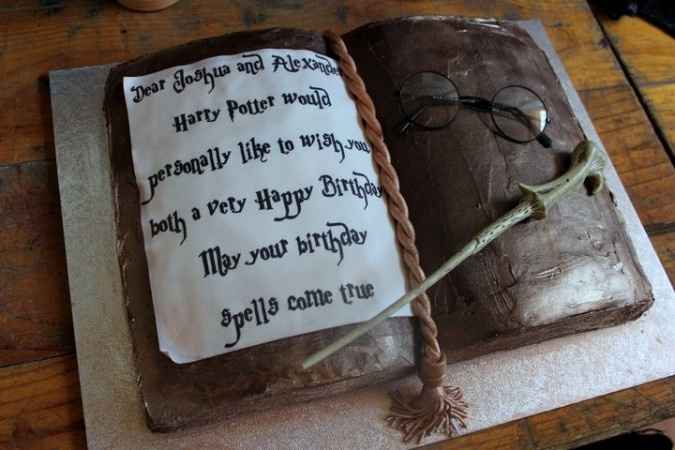 Dear Joshua and Alexander
Harry Potter would
personally like to wish you
both a very Happy Birthday
May your birthday
spells come true